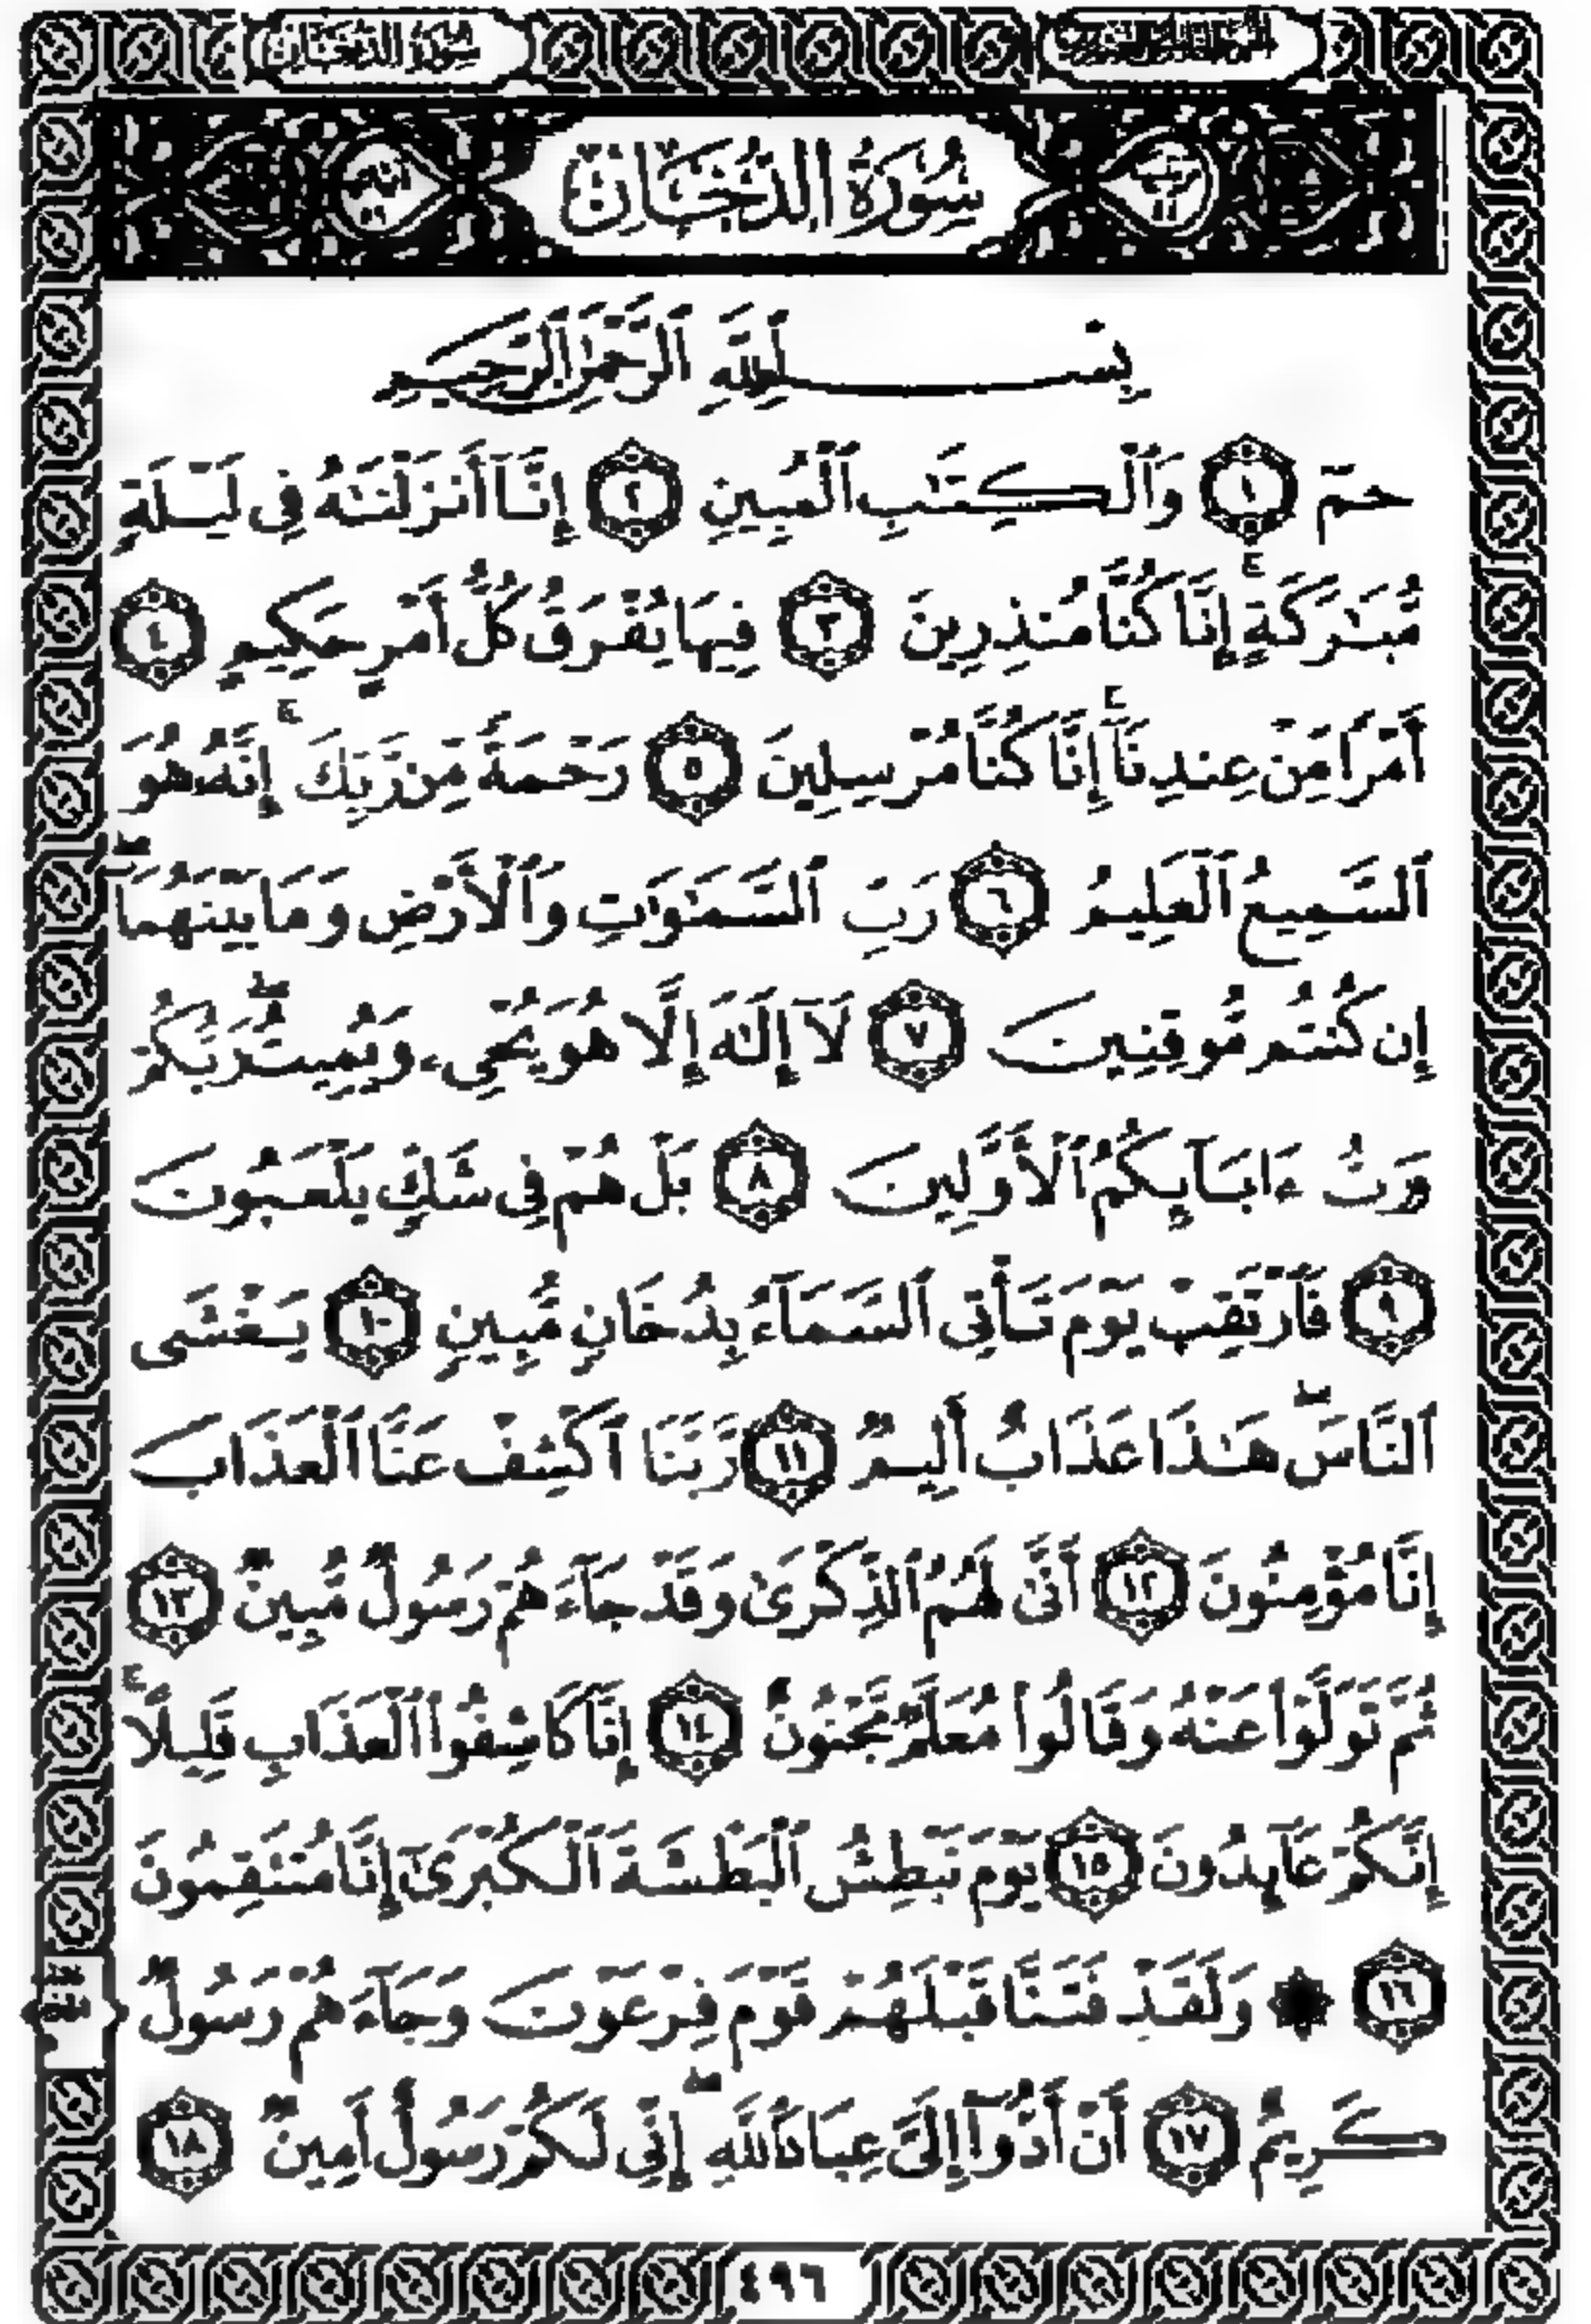 سُورَةُ الدُّخَانِ
سُورَةُ الدُّخَانِ
بِسْمِ ٱللَّهِ ٱلرَّحْمَٰنِ ٱلرَّحِيمِ
حمٓ ١ وَٱلْكِتَٰبِ ٱلْمُبِينِ ٢ إِنَّآ أَنزَلْنَٰهُ فِى لَيْلَةٍ
مُّبَٰرَكَةٍ ۚ إِنَّا كُنَّا مُنذِرِينَ ٣ فِيهَا يُفْرَقُ كُلُّ أَمْرٍ حَكِيمٍ ٤
أَمْرًا مِّنْ عِندِنَآ ۚ إِنَّا كُنَّا مُرْسِلِينَ ٥ رَحْمَةً مِّن رَّبِّكَ ۚ إِنَّهُۥ هُوَ
ٱلسَّمِيعُ ٱلْعَلِيمُ ٦ رَبِّ ٱلسَّمَٰوَٰتِ وَٱلْأَرْضِ وَمَا بَيْنَهُمَآ ۖ
إِن كُنتُم مُّوقِنِينَ ٧ لَآ إِلَٰهَ إِلَّا هُوَ يُحْىِۦ وَيُمِيتُ ۖ رَبُّكُمْ
وَرَبُّ ءَابَآئِكُمُ ٱلْأَوَّلِينَ ٨ بَلْ هُمْ فِى شَكٍّ يَلْعَبُونَ
٩ فَٱرْتَقِبْ يَوْمَ تَأْتِى ٱلسَّمَآءُ بِدُخَانٍ مُّبِينٍ ١٠ يَغْشَى
ٱلنَّاسَ ۖ هَٰذَا عَذَابٌ أَلِيمٌ ١١ رَّبَّنَا ٱكْشِفْ عَنَّا ٱلْعَذَابَ
إِنَّا مُؤْمِنُونَ ١٢ أَنَّىٰ لَهُمُ ٱلذِّكْرَىٰ وَقَدْ جَآءَهُمْ رَسُولٌ مُّبِينٌ ١٣
ثُمَّ تَوَلَّوْا۟ عَنْهُ وَقَالُوا۟ مُعَلَّمٌ مَّجْنُونٌ ١٤ إِنَّا كَاشِفُوا۟ ٱلْعَذَابِ قَلِيلًا ۚ
إِنَّكُمْ عَآئِدُونَ ١٥ يَوْمَ نَبْطِشُ ٱلْبَطْشَةَ ٱلْكُبْرَىٰٓ إِنَّا مُنتَقِمُونَ
١٦ ۞ وَلَقَدْ فَتَنَّا قَبْلَهُمْ قَوْمَ فِرْعَوْنَ وَجَآءَهُمْ رَسُولٌ
كَرِيمٌ ١٧ أَنْ أَدُّوٓا۟ إِلَىَّ عِبَادَ ٱللَّهِ ۖ إِنِّى لَكُمْ رَسُولٌ أَمِينٌ ١٨
٤٩٦